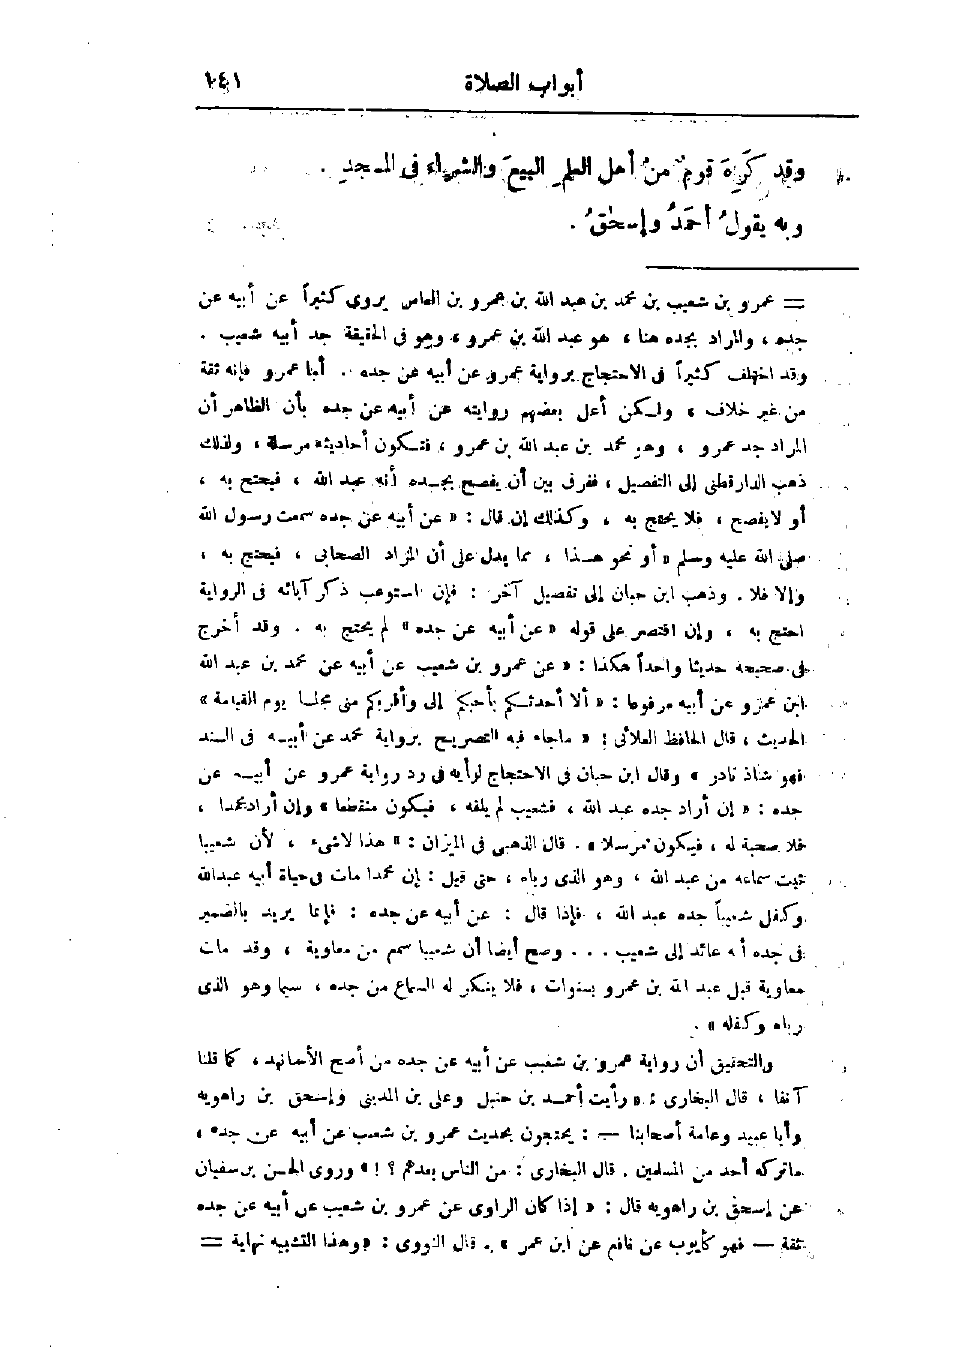 أبواب الصلاة ١٤١
وقد كَرِهَ قومٌ منْ أهل العلم البيعَ والشراء فى المسجدِ .
وبه يقولُ أحمَدُ وإسحٰقُ .
= عمرو بن شعيب بن محمد بن عبد الله بن عمرو بن العاص يروى كثيراً عن أبيه عن
جده ، والمراد بجده هنا ، هو عبد الله بن عمرو ، وهو فى الحقيقة جد أبيه شعيب .
وقد اختلف كثيراً فى الاحتجاج برواية عمرو عن أبيه عن جده . أما عمرو فإنه ثقة
من غير خلاف ، ولكن أعل بعضهم روايته عن أبيه عن جده بأن الظاهر أن
المراد جد عمرو ، وهو محمد بن عبد الله بن عمرو ، فتكون أحاديثه مرسلة ، ولذلك
ذهب الدارقطنى إلى التفصيل ، ففرق بين أن يفصح بجده أنه عبد الله ، فيحتج به ،
أو لا يفصح ، فلا يحتج به ، وكذلك إن قال : « عن أبيه عن جده سمعت رسول الله
صلى الله عليه وسلم » أو نحو هذا ، مما يدل على أن المراد الصحابى ، فيحتج به ،
وإلا فلا . وذهب ابن حبان إلى تفصيل آخر : فإن استوعب ذكر آبائه فى الرواية
احتج به ، وإن اقتصر على قوله « عن أبيه عن جده » لم يحتج به . وقد أخرج
فى صحيحه حديثا واحداً هكذا : « عن عمرو بن شعيب عن أبيه عن محمد بن عبد الله
ابن عمرو عن أبيه مرفوعا : « ألا أحدثكم بأحبكم إلى وأقربكم منى مجلسا يوم القيامة »
الحديث ، قال الحافظ العلائى : « ماجاء فيه التصريح برواية محمد عن أبيه فى السند
فهو شاذ نادر » وقال ابن حبان فى الاحتجاج لرأيه فى رد رواية عمرو عن أبيه عن
جده : « إن أراد جده عبد الله ، فشعيب لم يلقه ، فيكون منقطعا » وإن أراد محمدا ،
فلا صحبة له ، فيكون مرسلا » . قال الذهبى فى الميزان : « هذا لاشىء ، لأن شعيبا
ثبت سماعه من عبد الله ، وهو الذى رباه ، حتى قيل : إن محمدا مات فى حياة أبيه عبدالله
وكفل شعيباً جده عبد الله ، فإذا قال : عن أبيه عن جده : فإنما يريد بالضمير
فى جده أنه عائد إلى شعيب . . . وصح أيضا أن شعيبا سمع من معاوية ، وقد مات
معاوية قبل عبد الله بن عمرو بسنوات ، فلا ينكر له السماع من جده ، سيما وهو الذى
رباه وكفله » .
والتحقيق أن رواية عمرو بن شعيب عن أبيه عن جده من أصح الأسانيد ، كما قلنا
آنفا ، قال البخارى : « رأيت أحمد بن حنبل وعلى بن المدينى وإسحق بن راهويه
وأبا عبيد وعامة أصحابنا — : يحتجون بحديث عمرو بن شعيب عن أبيه عن جده ،
ماتركه أحد من المسلمين . قال البخارى : من الناس بعدهم ؟ ! » وروى الحسن بن سفيان
عن إسحق بن راهويه قال : « إذا كان الراوى عن عمرو بن شعيب عن أبيه عن جده
ثقة — فهو كأيوب عن نافع عن ابن عمر » . قال النووى : « وهذا التشبيه نهاية =